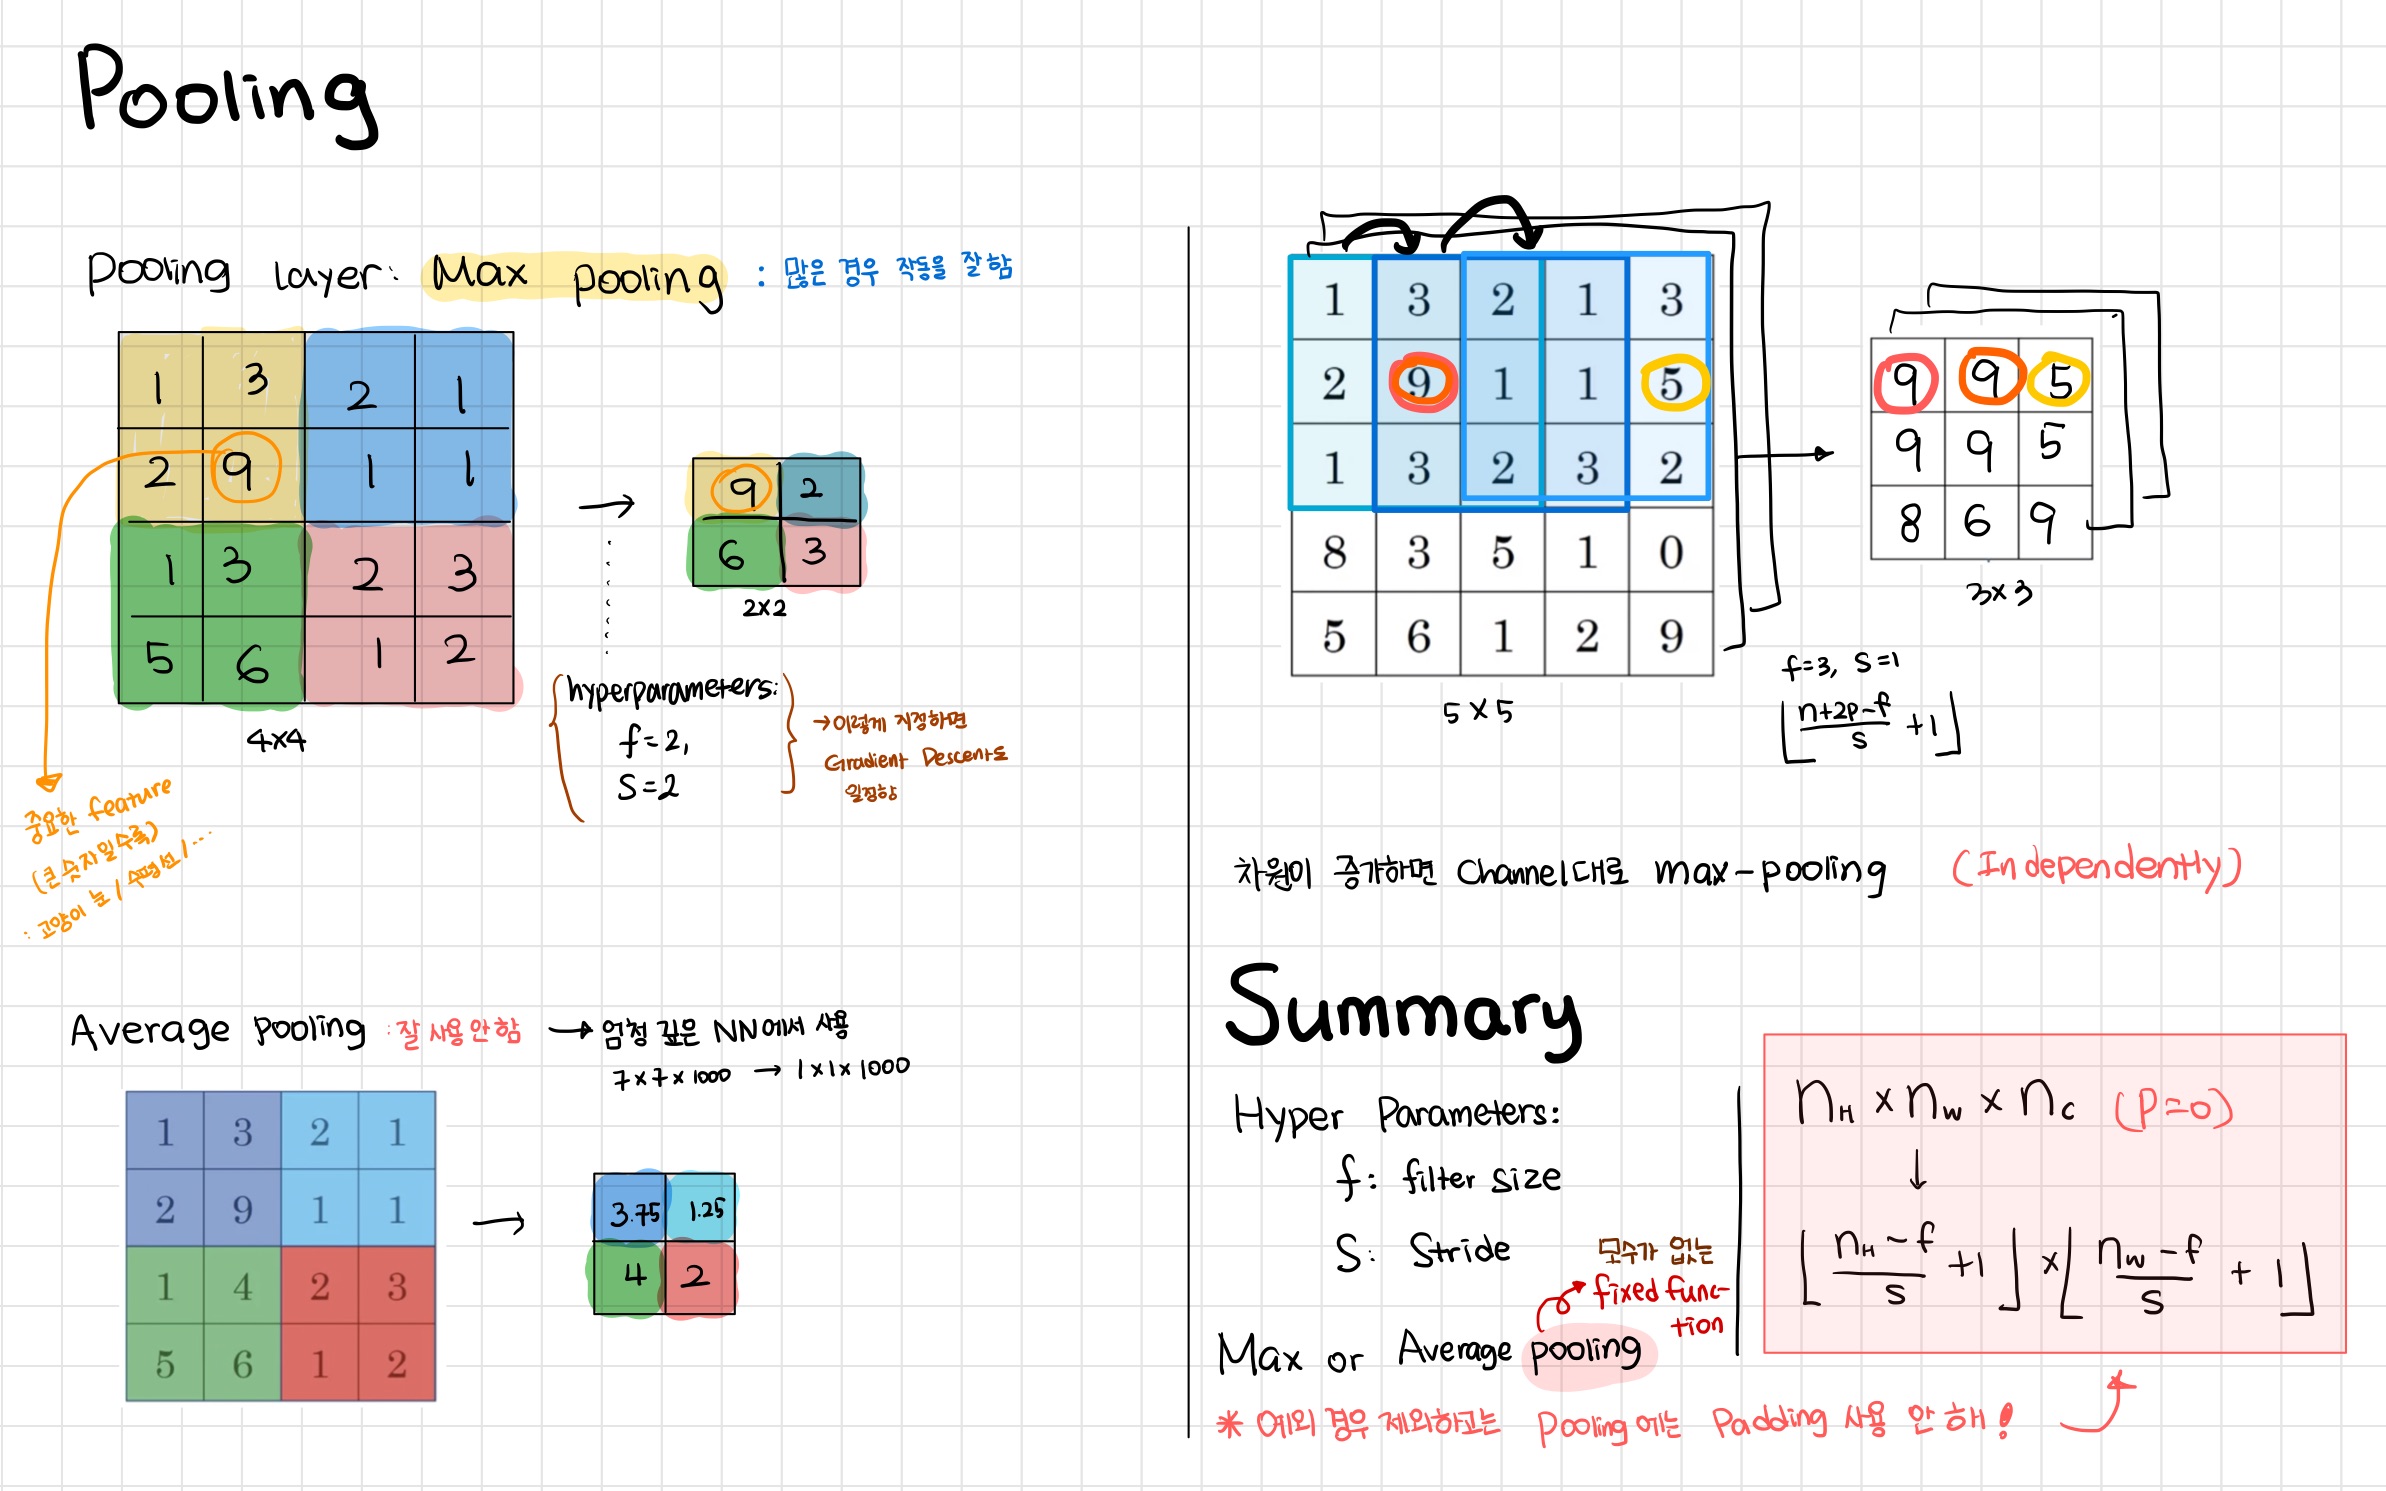 Pooling
Pooling Layer: Max pooling : 많은 경우 작동을 잘함
1 3 2 1
2 9 1 1
1 3 2 3
5 6 1 2
4×4
9 2
6 3
2×2
hyperparameters:
f=2,
S=2
→이렇게 지정하면
Gradient Descent도
일정함
중요한 feature
(큰 숫자일수록)
: 고양이 눈 / 수평선 / ...
Average pooling : 잘 사용 안함 → 엄청 깊은 NN에서 사용
7×7×1000 → 1×1×1000
1 3 2 1
2 9 1 1
1 4 2 3
5 6 1 2
3.75 1.25
4 2
1 3 2 1 3
2 9 1 1 5
1 3 2 3 2
8 3 5 1 0
5 6 1 2 9
5×5
9 9 5
9 9 5
8 6 9
3×3
f=3, S=1
⌊(n+2p-f)/s +1⌋
차원이 증가하면 Channel대로 max-pooling (Independently)
Summary
Hyper Parameters:
f: filter size
S: Stride
모수가 없는
fixed func-
tion
Max or Average pooling
* 예외 경우 제외하고는 Pooling에는 Padding 사용 안 해!
n_H × n_W × n_C (P=0)
↓
⌊(n_H-f)/s +1⌋ × ⌊(n_W-f)/s + 1⌋